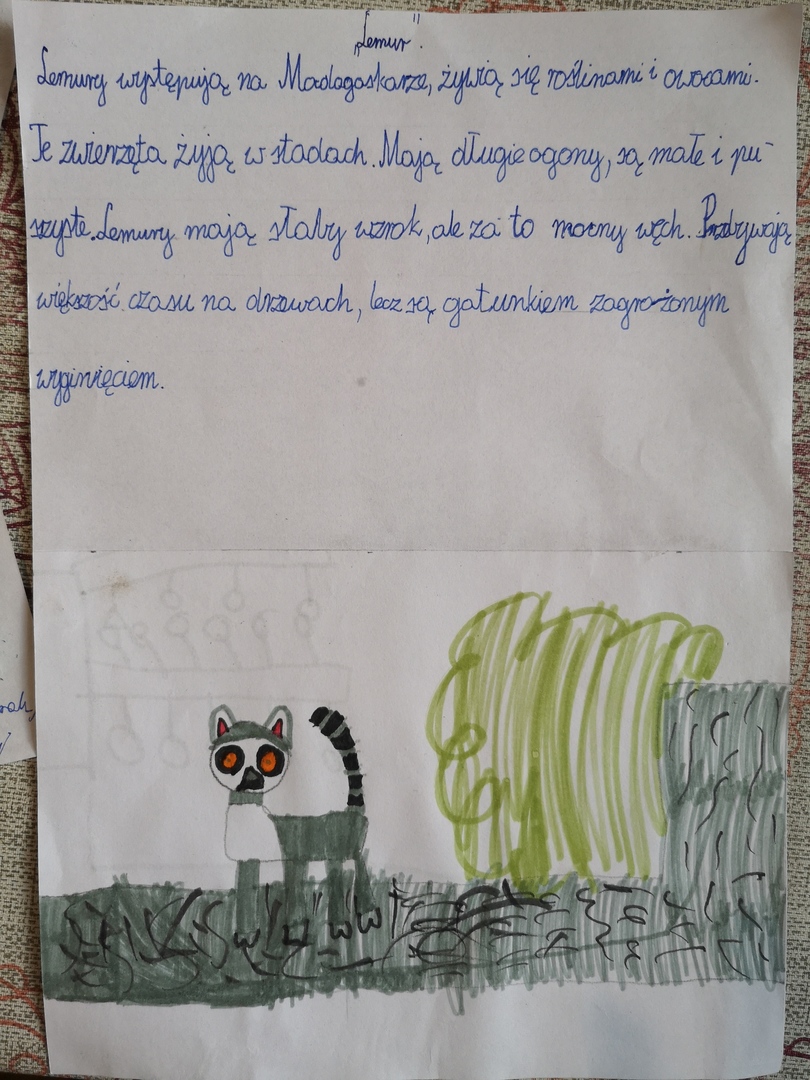 „Lemur".
Lemury występują na Madagaskarze, żywią się roślinami i owocami.
Te zwierzęta żyją w stadach. Mają długie ogony, są małe i pu-
szyste. Lemury mają słaby wzrok, ale za to mocny węch. Przebywają
większość czasu na drzewach, lecz są gatunkiem zagrożonym
wyginięciem.